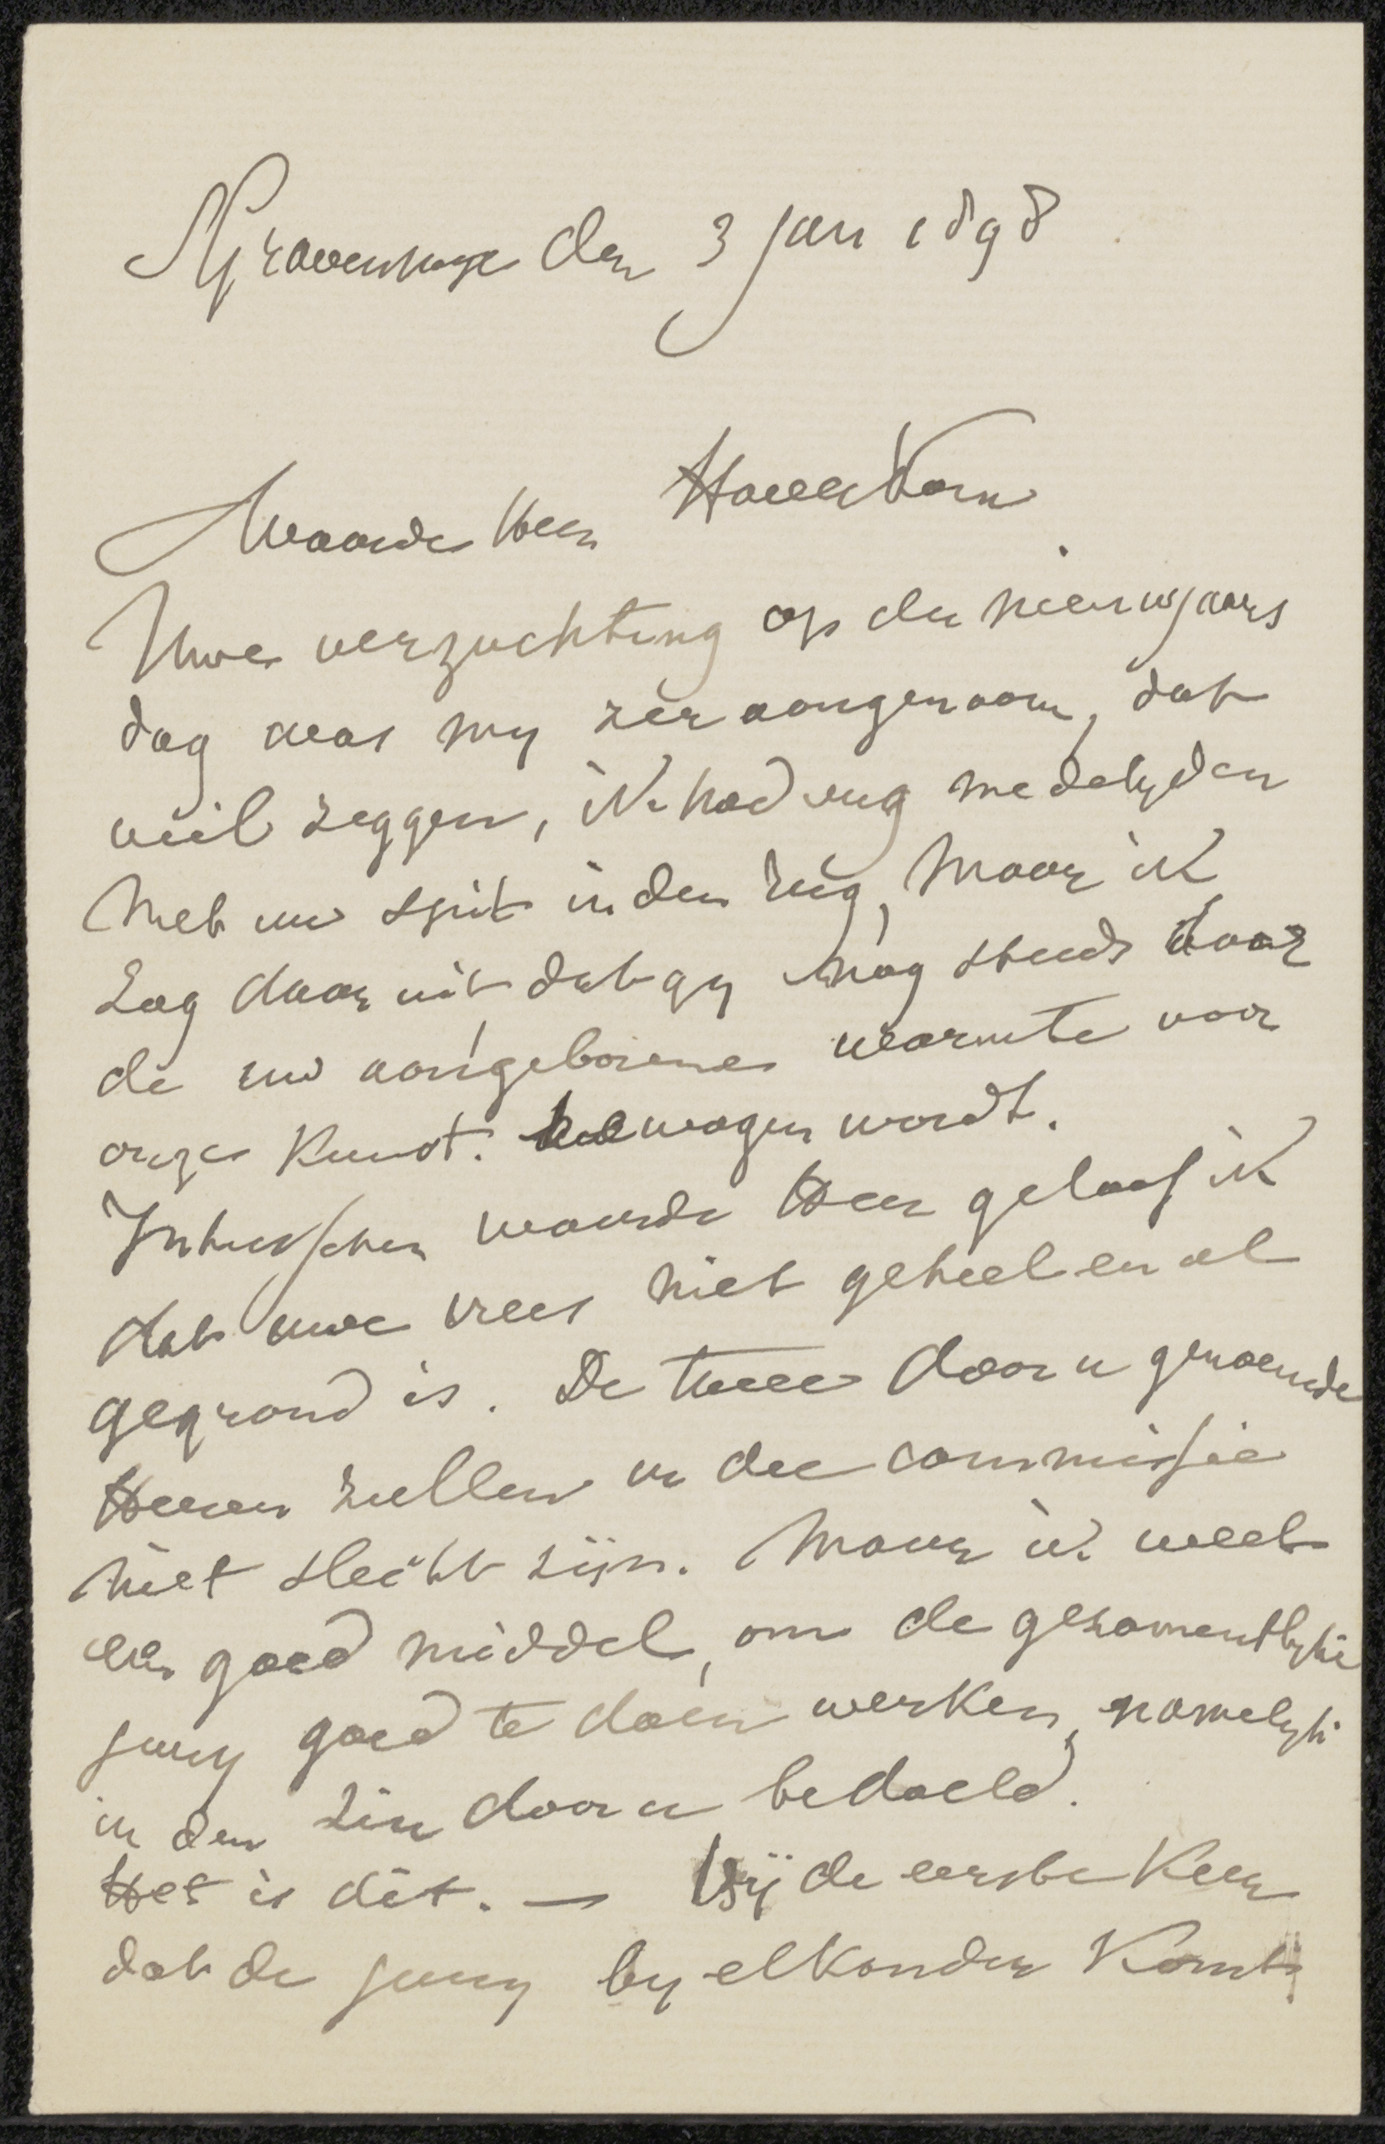 S'Gravenhage den 3 Jan 1898
Waarde Heer Haverkorn
Uwe verzuchting op den nieuwjaars
dag was my zeer aangenaam, dat
wil zeggen, ik had nog medelyden
met uw spit in den rug, maar ik
zag daar uit dat gy nog steeds door
de uw aangeborene warmte voor
onze Kunst. bewogen wordt.
Intusschen waarde Heer geloof ik
dat uwe vrees niet geheel en al
gegrond is. De twee door u genoemde
Heeren zullen in die commissie
niet slecht zijn. Maar ik weet
een goed middel, om de gezamentlyke
jury goed te doen werken, namelyk
in den zin door u bedoeld.
Het is dit. — Bij de eerste Keer
dat de jury by elkander Komt